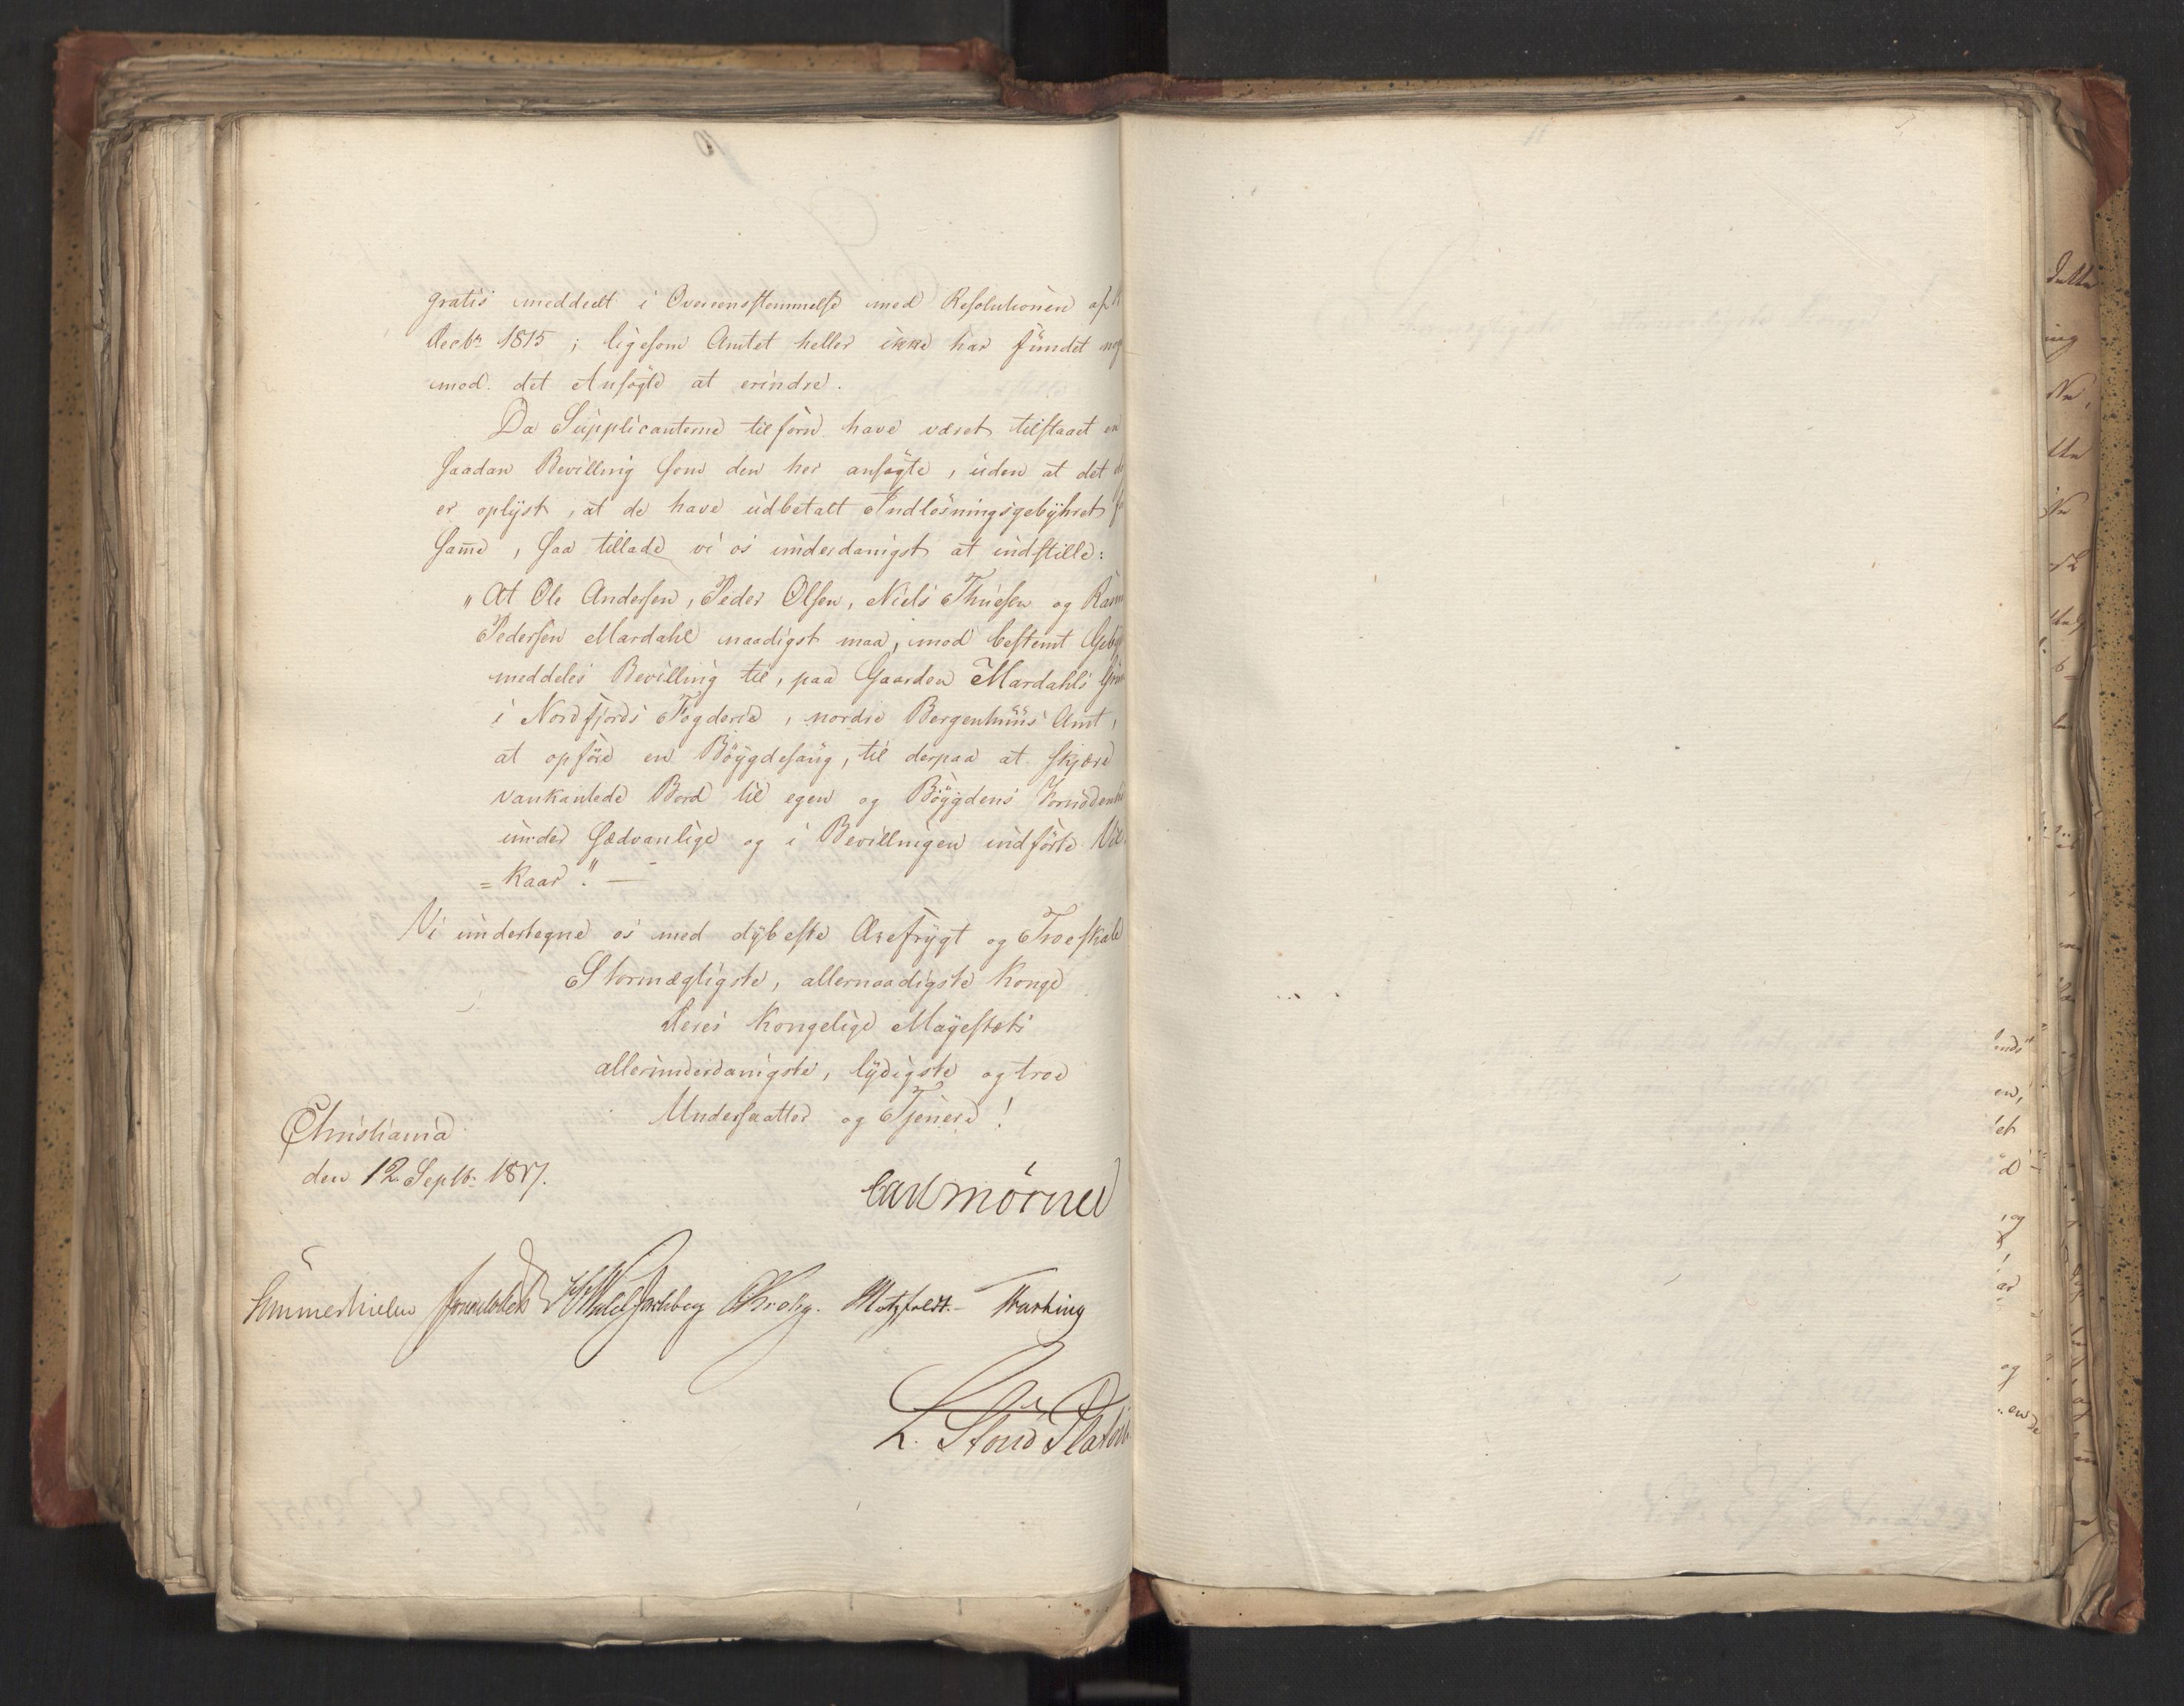 gratis meddeelt i Overeensstemmelse med Resolutionen af
Decbr 1815; ligesom Amtet heller ikke har fundet nog
mod det Ansøgte at erindre.
Da Supplicanterne tilforn have været tilstaaet en
saadan Bevilling som den her ansøgte, uden at det
er oplyst, at de have udbetalt Indløsningsgebyhret
samme, saa tillade vi os underdanigst at indstille:
"At Ole Andersen, Peder Olsen, Niels Thuesen og Rasm
Pedersen Mardahl naadigst maa, mod bestemt Geby
meddeles Bevilling til, paa Gaarden Mardahls Grun
i Nordfjords Fogderie, nordre Bergenhuus Amt,
at opføre en Bøygdesaug, til derpaa at skjære
vankantede Bord til egen og Bøygdens Fornødenh
under sædvanlige og i Bevillingen indførte Vil-
=kaar". —
Vi undertegne os med dybeste Ærefrygt og Troeskab
Stormægtigste, allernaadigste Konge
Deres Kongelige Mayestæts
allerunderdanigste, lydigste og troe
Undersaatter og Tjenere!
Christiania
den 12. Septbr 1817.
Carl Mörner
Sommerhielm Huelfeldt Krohg. Motzfeldt. Fasting
L. Stoud Platou